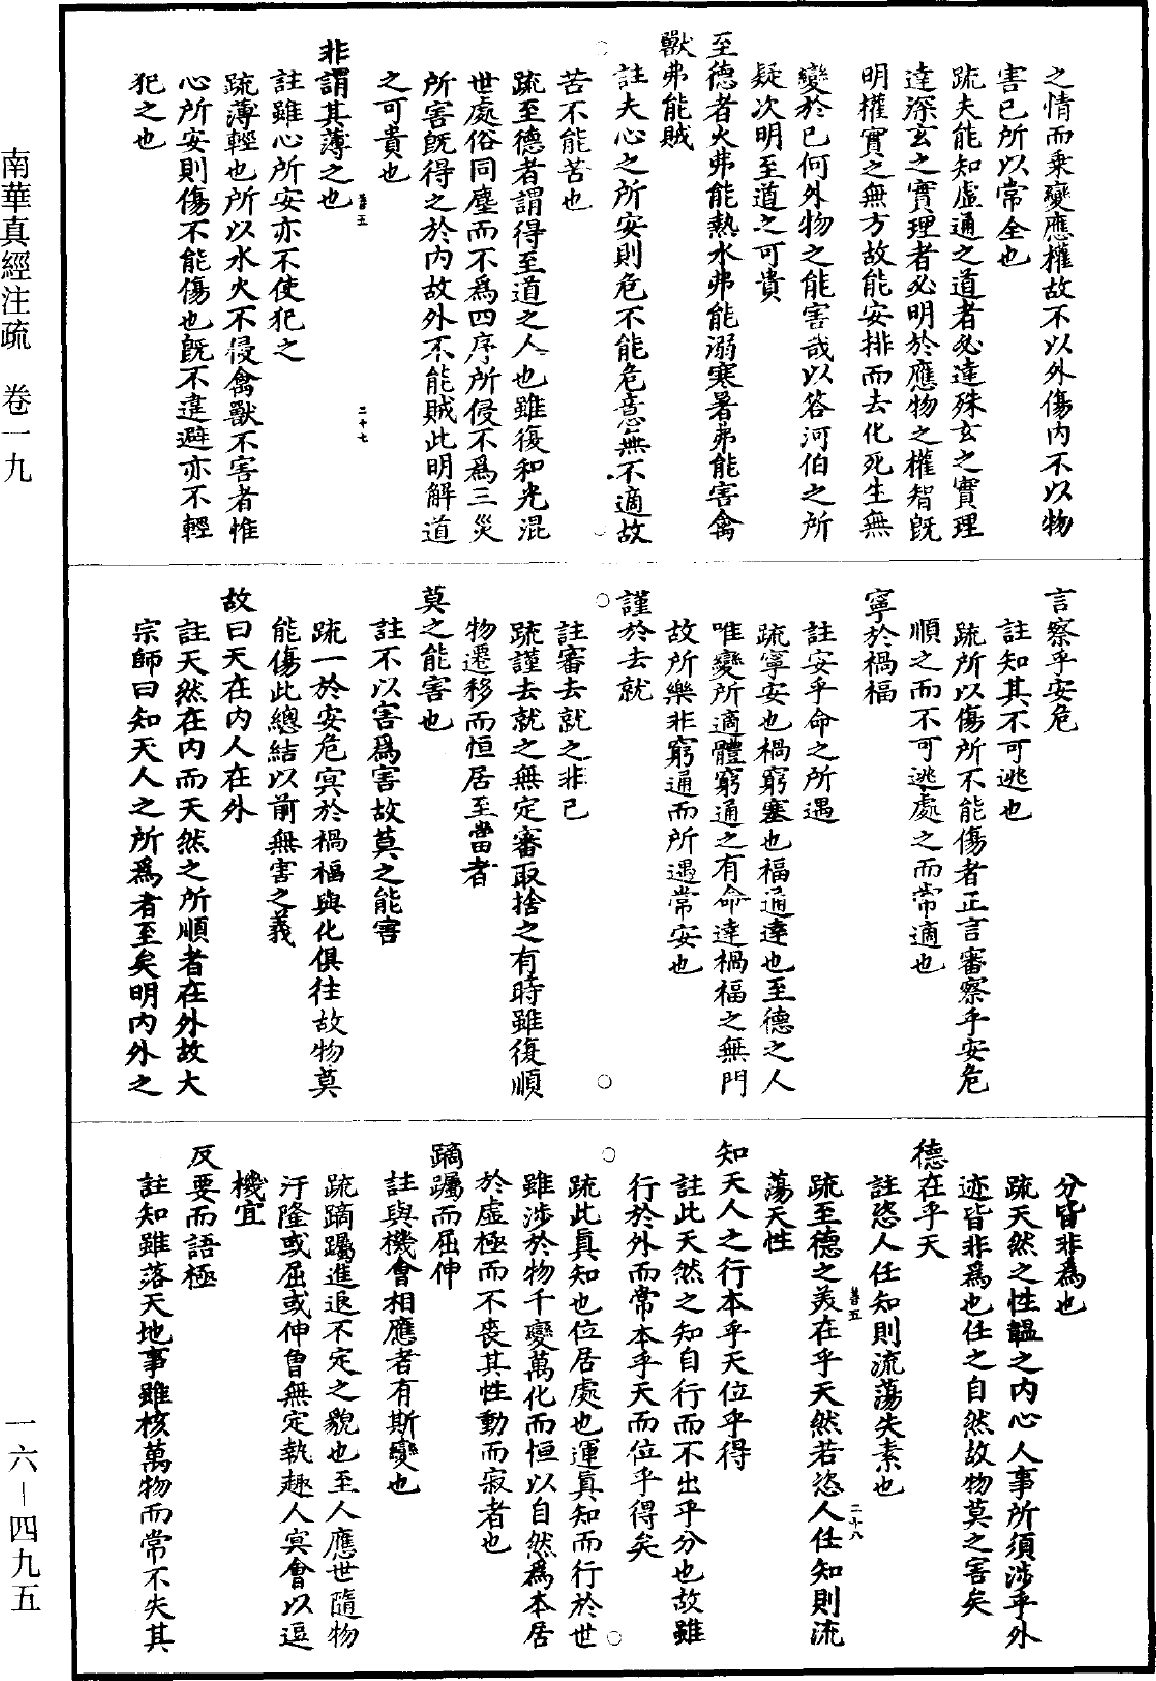 之情而乘變應權故不以外傷内不以物
害已所以常全也
疏夫能知虛通之道者必達殊玄之實理
達深玄之實理者必明於應物之權智旣
明權實之無方故能安排而去化死生無
變於已何外物之能害哉以答河伯之所
疑次明至道之可貴
至德者火弗能熱水弗能溺寒暑弗能害禽
獸弗能賊
註夫心之所安則危不能危意無不適故
苦不能苦也
疏至德者謂得至道之人也雖復和光混
世處俗同塵而不爲四序所侵不爲三災
所害旣得之於内故外不能賊此明解道
之可貴也
善五 二十七
非謂其薄之也
註雖心所安亦不使犯之
疏薄輕也所以水火不侵禽獸不害者惟
心所安則傷不能傷也旣不違避亦不輕
犯之也
言察乎安危
註知其不可逃也
疏所以傷所不能傷者正言審察乎安危
順之而不可逃處之而常適也
寧於禍福
註安乎命之所遇
疏寧安也禍窮塞也福通達也至德之人
唯變所適體窮通之有命達禍福之無門
故所樂非窮通而所遇常安也
謹於去就
註審去就之非已
疏謹去就之無定審取捨之有時雖復順
物遷移而恒居至當者
莫之能害也
註不以害爲害故莫之能害
疏一於安危寘於禍福與化俱往故物莫
能傷此總結以前無害之義
故曰天在内人在外
註天然在内而天然之所順者在外故大
宗師曰知天人之所爲者至矣明内外之
分皆非爲也
疏天然之性韞之内心人事所須涉乎外
迹皆非爲也任之自然故物莫之害矣
德在乎天
註恣人任知則流蕩失素也
疏至德之美在乎天然若恣人任知則流
蕩天性
善五 二十八
知天人之行本乎天位乎得
註此天然之知自行而不出乎分也故雖
行於外而常本乎天而位乎得矣
疏此真知也位居處也運真知而行於世
雖涉於物千變萬化而恒以自然爲本居
於虛極而不喪其性動而寂者也
蹢躅而屈伸
註與機會相應者有斯變也
疏蹢躅進退不定之貌也至人應世隨物
汙隆或屈或伸曾無定執趣人寘會以逗
機宜
反要而語極
註知雖落天地事雖核萬物而常不失其
南華真經注疏 卷一九
一六－四九五